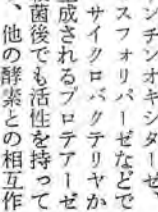 ンチンオキシダーゼ
スフォリパーゼなどで
サイクロバクテリヤか
産されるプロテアーゼ
菌後でも活性を持って
、他の酵素との相互作